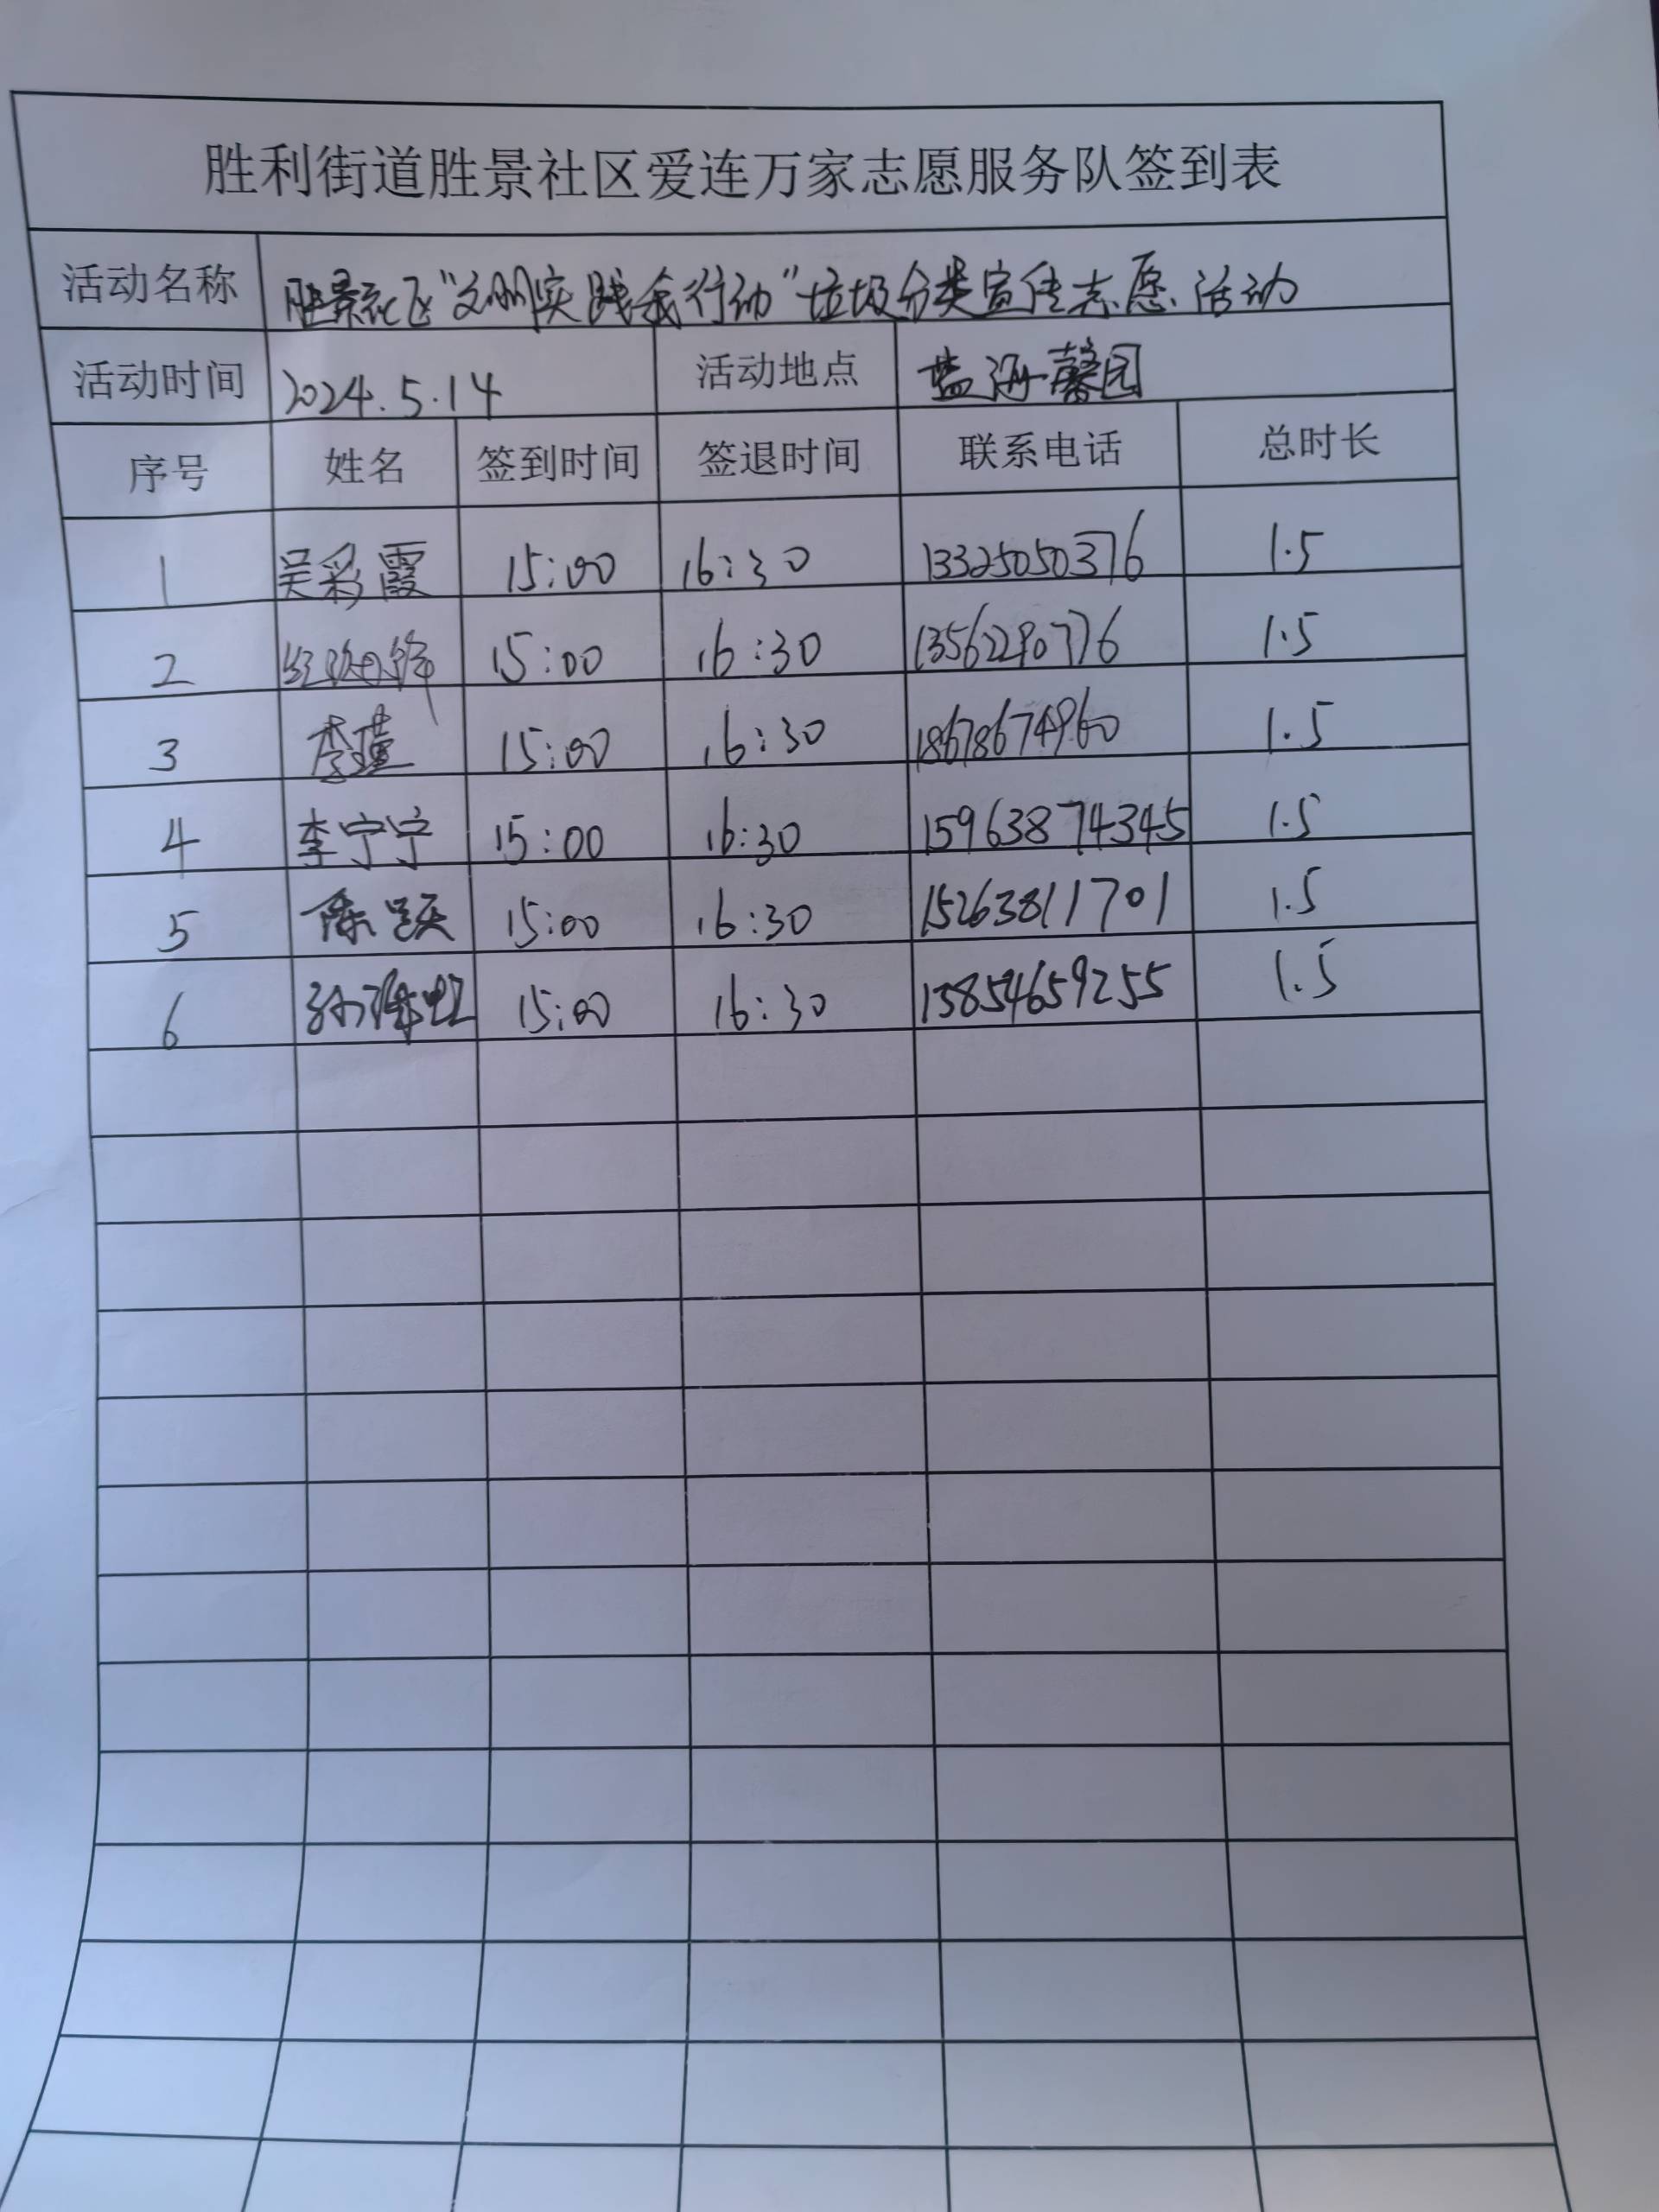 胜利街道胜景社区爱连万家志愿服务队签到表
活动名称 胜景社区“文明实践我行动”垃圾分类宣传志愿活动
活动时间 2024.5.14 活动地点 蓝海馨园
序号 姓名 签到时间 签退时间 联系电话 总时长
1 吴彩霞 15:00 16:30 13325050376 1.5
2 15:00 16:30 1.5
3 李瑾 15:00 16:30 18678674960 1.5
4 李宁宁 15:00 16:30 15963874345 1.5
5 陈 15:00 16:30 15263811701 1.5
6 孙 15:00 16:30 13854659255 1.5